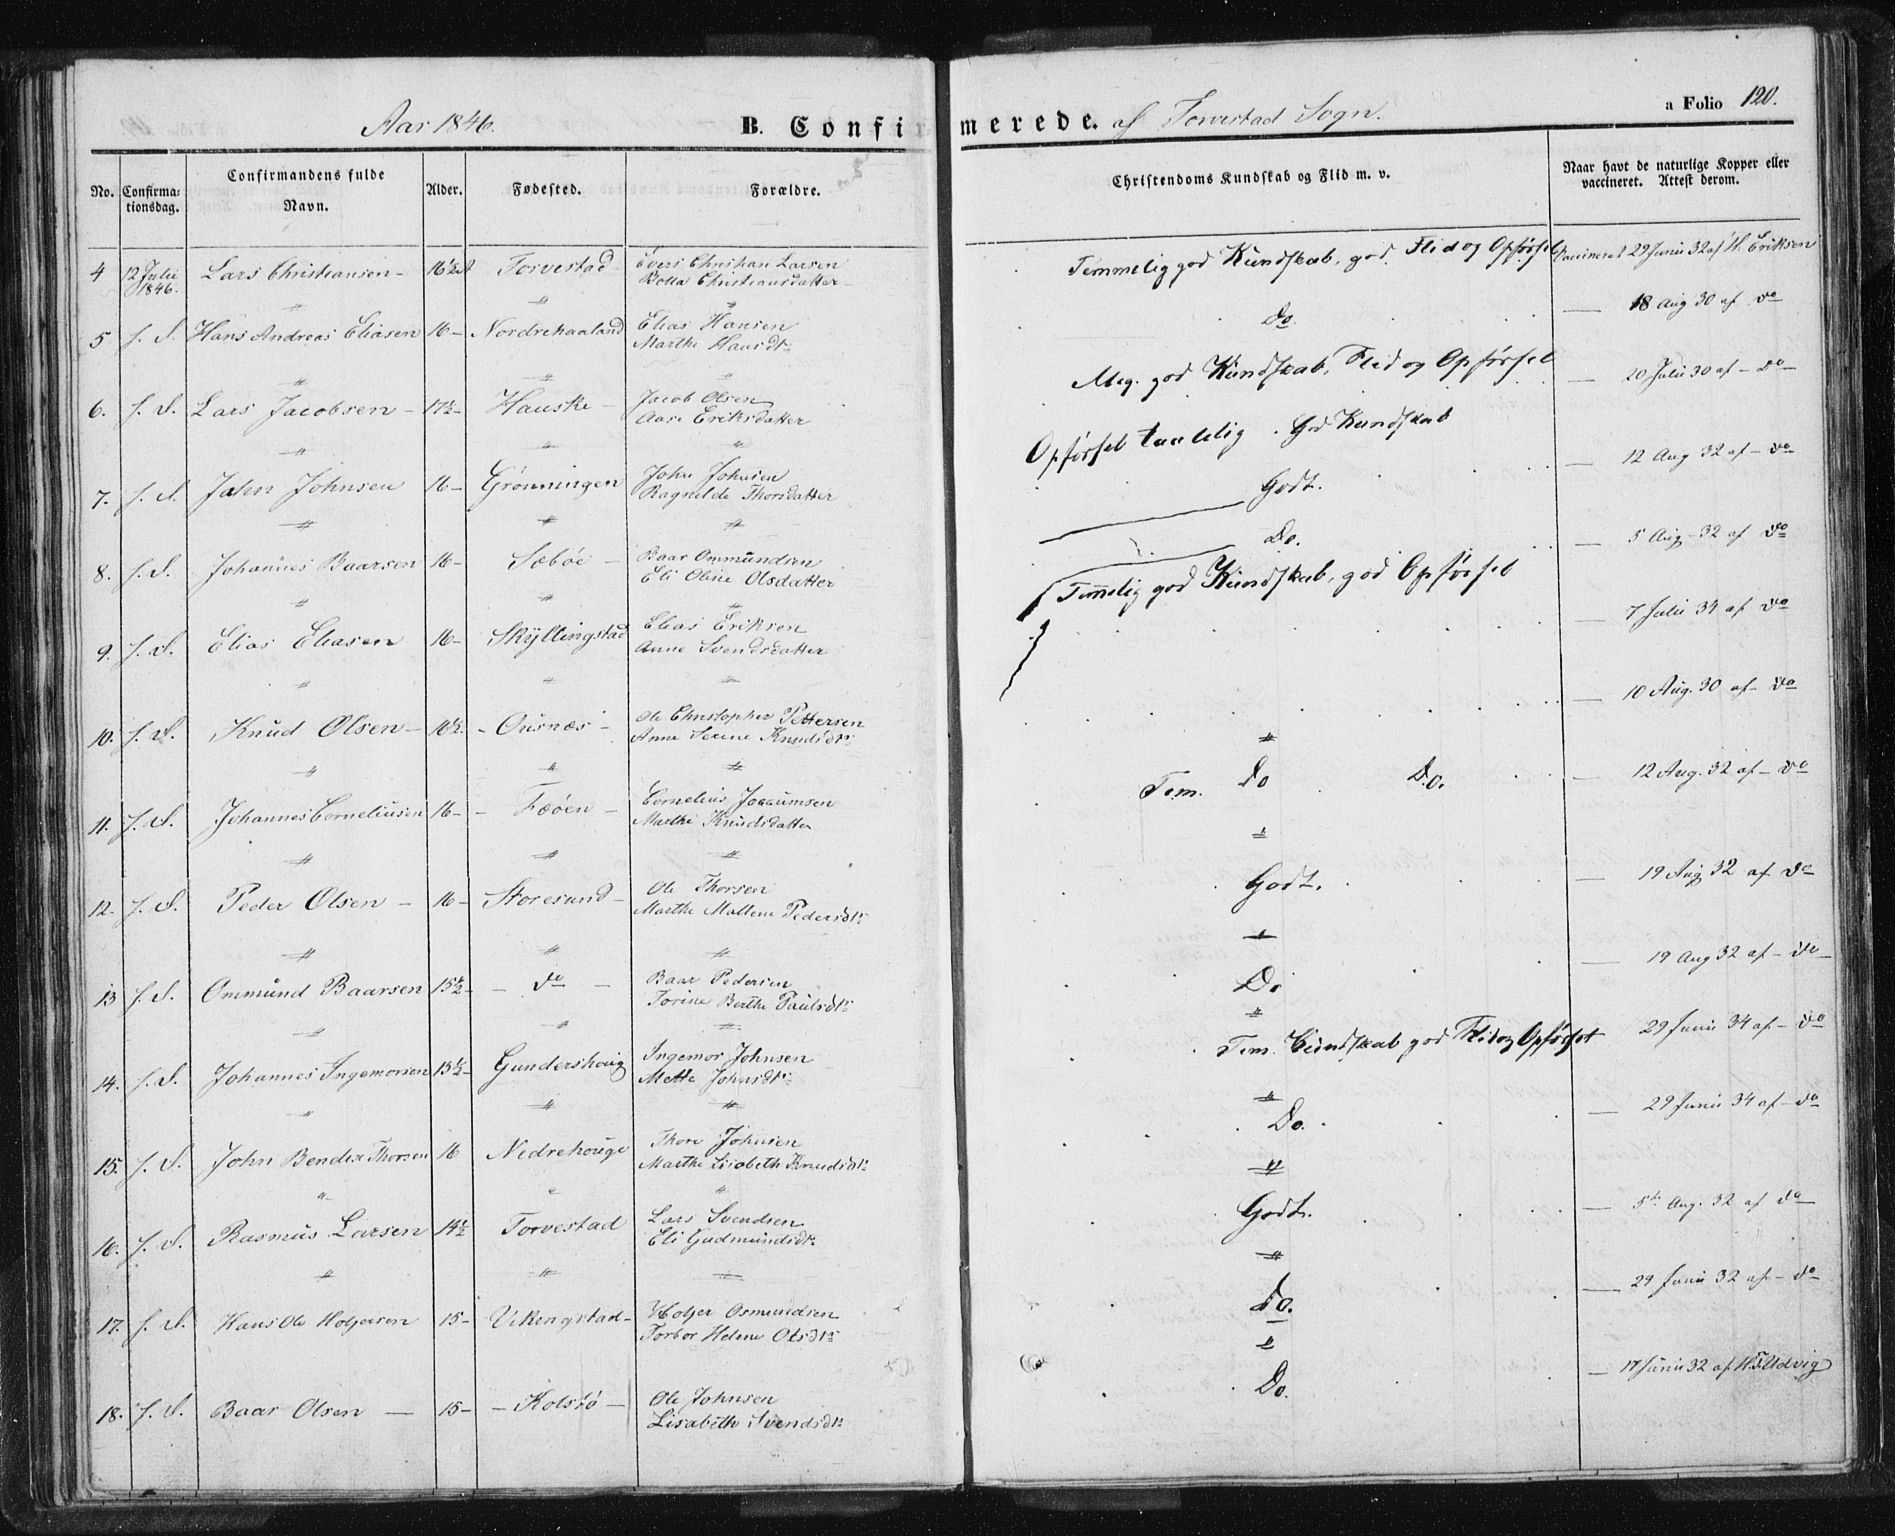 Aar 1846.
B. Confirmerede. af Torvestad Sogn.
a Folio 120.
No.
Confirma-
tionsdag.
Confirmandens fulde
Navn.
Alder.
Fødested.
Forældre.
Christendoms Kundskab og Flid m. v.
Naar havt de naturlige Kopper eller
vaccineret. Attest derom.
4 12 Julii 1846. Lars Christiansen - 16½ Torvestad
Christian Larsen
Christiansdatter
Temmelig god Kundskab, god Flid og Opførsel
Vaccineret 29 Junii 32 af H. Eriksen
5 f. S. Hans Andreas Eliasen 16 - Nordrehaaland
Elias Hansen
Marthe Hansdtr
Do.
— 18 Aug 30 af do
6. f. S. Lars Jacobsen - 17½ - Hauske -
Jacob Olsen
Aase Eriksdatter
Meg. god Kundskab, Flid og Opførsel
— 20 Julii 30 af - do -
Opførsel taalelig . God Kundskab
7. f. S. John Johnsen 16 - Grønningen
John Johnsen
Ragnilde Thorsdatter
Godt.
— 12 Aug 32 af - do
8. f. S. Johannes Baarsen 16 - Sæbøe -
Baar Ommundsen
Eli Oline Olsdatter
Do.
— 5 Aug - 32 af do
9. f. S. Elias Eliasen 16 - Skyllingstad
Elias Eriksen
Anne Svendsdatter
Temelig god Kundskab, god Opførsel
— 7 Julii 34 af do
10. f. S. Knud Olsen - 16½. - Ousnæs -
Ole Christopher Pettersen
Anne Serene Knudsdtr
— 10 Aug. 30 af - do
11. f. S. Johannes Corneliusen 16 - - Fæøen -
Cornelius Joccumsen
Marthe Knudsdatter
Tem. Do Do.
— 12 Aug. 32 af - do
12. f. S. Peder Olsen - 16 - Storesund -
Ole Thorsen
Marthe Mallene Pedersdtr
Godt.
— 19 Aug 32 af do
13 f. S. Ommund Baarsen 15½ - - do -
Baar Pedersen
Torine Berthe Paulsdtr
Do
— 19 Aug 32 af - do
14. f. S. Johannes Ingemorsen 15½ - Gundershoug
Ingemor Johnsen
Mette Johnsdtr
Tem. Kundskab god Flid og Opførsel
29 Junii 34 af - do
15. f. S. John Bendix Thorsen 16 Nedrehouge
Thore Johnsen
Marthe Lisabeth Knudsdtr
Do.
— 29 Junii 34 af - do
16. f. S. Rasmus Larsen 14½ Torvestad
Lars Svendsen
Eli Gudmundsdtr
Godt.
— 5te Aug. 32 af do
17. f. S. Hans Ole Holjersen 15 - Vikengstad -
Holjer Osmundsen
Torbor Helene Olsdtr
Do.
— 29 Junii 32 af - do
18. f. S. Baar Olsen — 15 - - Kolstø -
Ole Johnsen
Lisabeth Svendsdtr
Do.
— 17 Junii 32 af